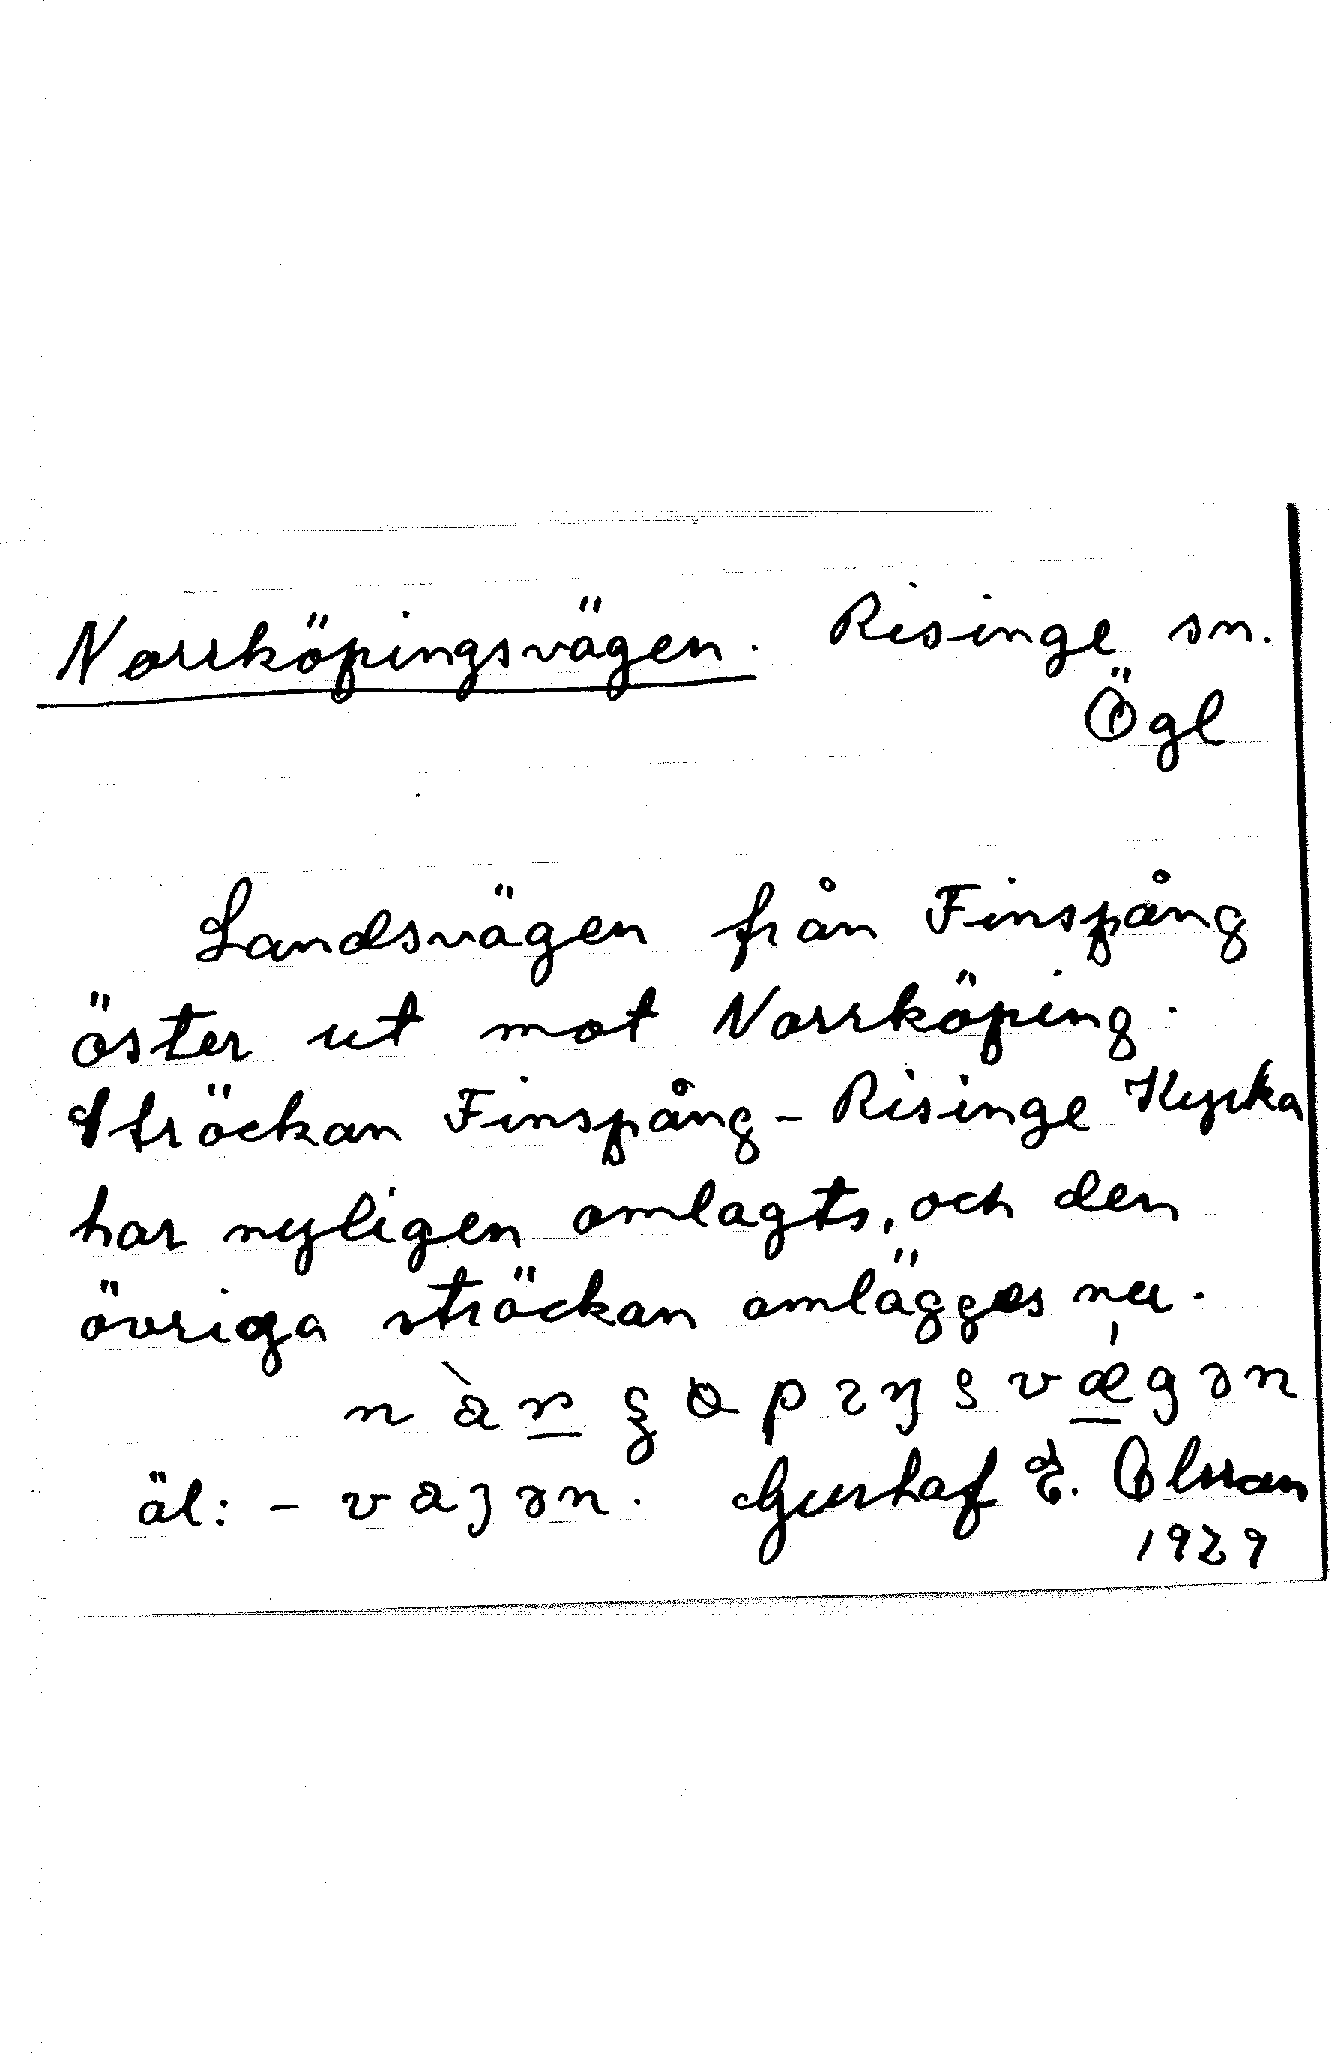 Norrköpingsvägen. Risinge sn.
Ögl
Landsvägen från Finspång
öster ut mot Norrköping.
Sträckan Finspång - Risinge Kyrka
har nyligen omlagts, och den
övriga sträckan omlägges nu.
äl: - vaȷən. Gustaf E. Olsson
1929